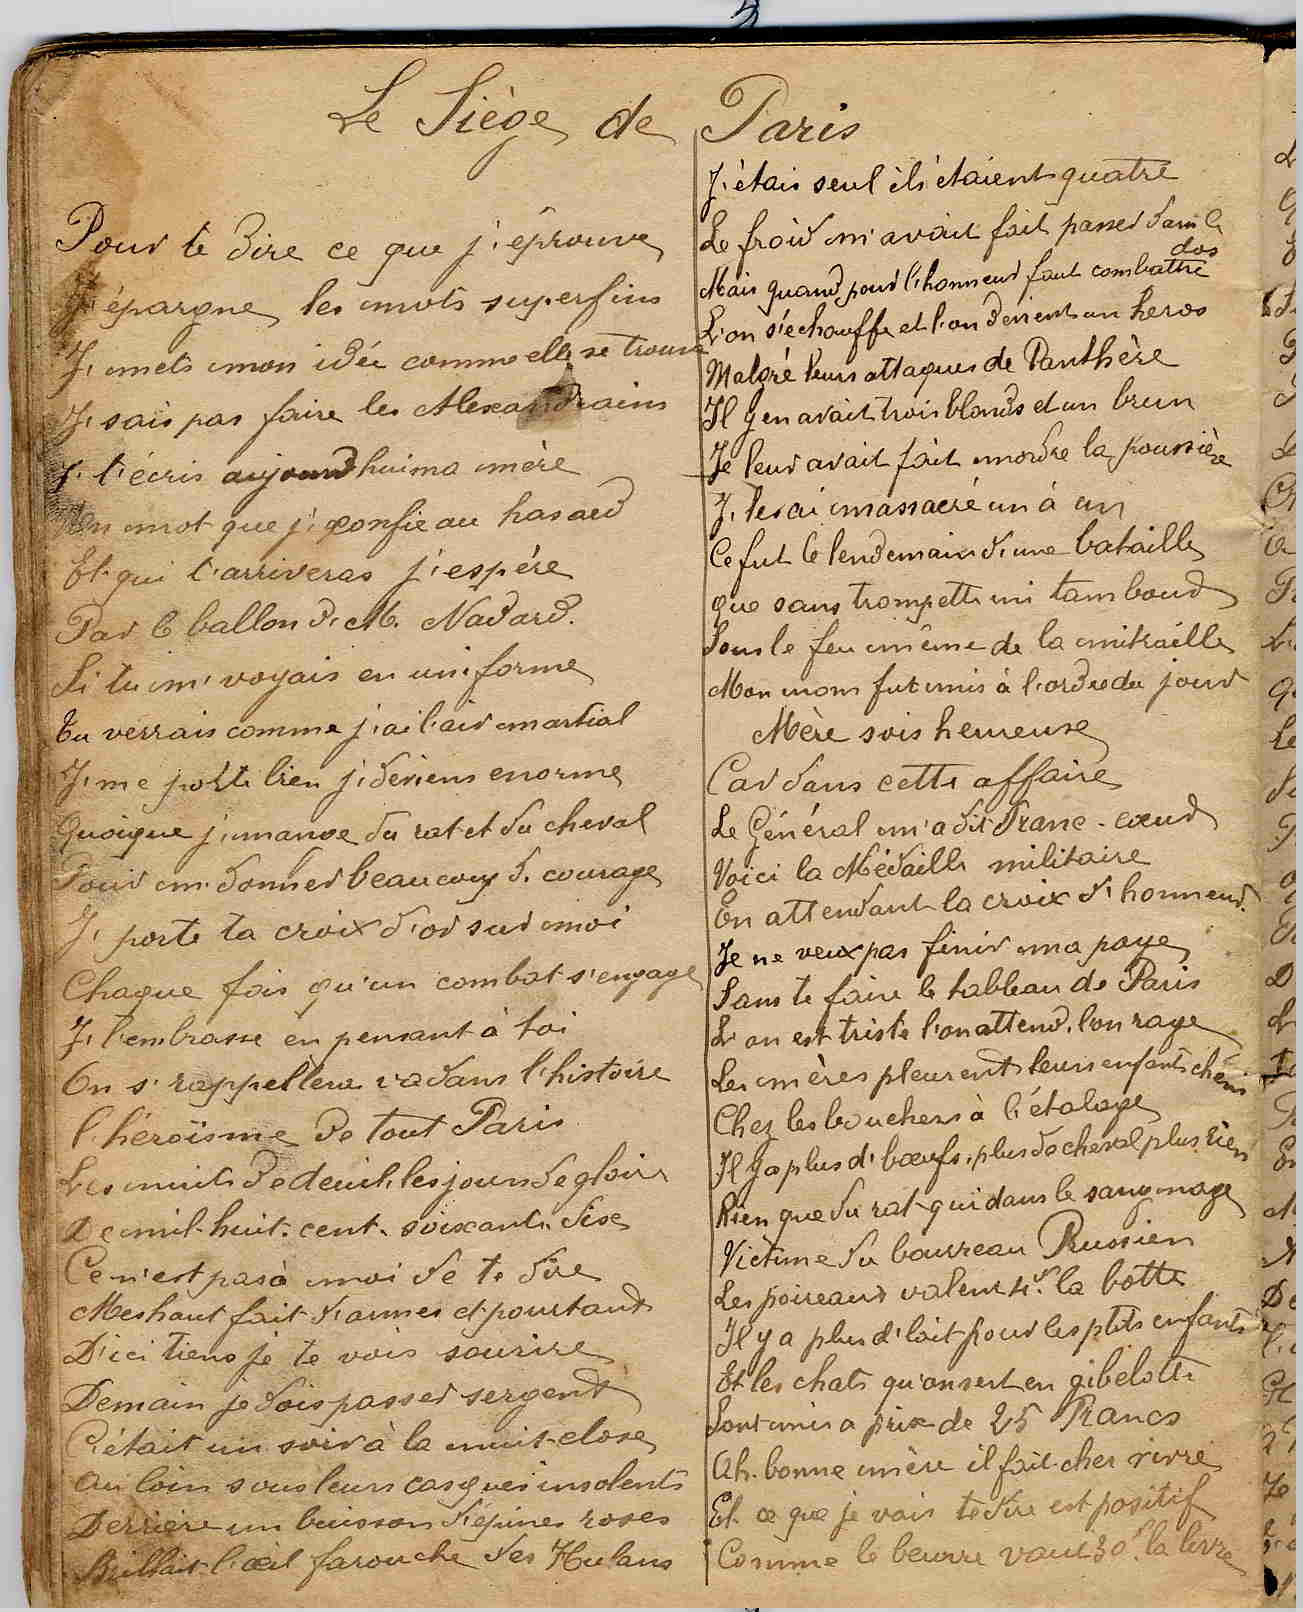 Le Siège de Paris
Pour te dire ce que j'éprouve
J'épargne les mots superfins
J'mets mon idée comme elle se trouve
J'sais pas faire les Alexandrains
J't'écris aujourd'hui ma mère
Un mot que j'confie au hasard
Et qui t'arriveras j'espére
Par le ballon d'M. Nadard.
Si tu m'voyais en uniforme
Tu verrais comme j'ai l'air martial
J'me porte bien j'deviens enorme
Quoique j'mange du rat et du cheval
Pour m'donner beaucoup d'courage
J'porte ta croix d'or sur moi
Chaque fois qu'un combat s'engage
J't'embrasse en pensant à toi
On s'rappellera va dans l'histoire
l'héroïsme de tout Paris
Les nuits de deuil, les jours de gloire
De mil-huit-cent-soixante dix
Ce n'est pas à moi de te dire
Mes haut fait d'armes et pourtant
D'ici tiens je te vois sourire
Demain je dois passer sergent
C'était un soir à la nuit close
Au loin sous leurs casques insolents
Derrière un buisson d'épines roses
Brillait l'œil farouche des Hulans
J'étais seul ils étaient quatre
Le froid m'avait fait passer dans le
dos
Mais quand pour l'honneur faut combattre
L'on s'échauffe et l'on devient un heros
Malgré leurs attaques de Panthère
Il y en avait trois blonds et un brun
Je leur avait fait mordre la poussière
J'les ai massacré un à un
Ce fut le lendemain d'une bataille
que sans trompette ni tambour
Sous le feu même de la mitraille
Mon nom fut mis à l'ordre du jour
Mère sois heureuse
Car dans cette affaire
Le Général m'a dit Franc-cœur
Voici la Médaille militaire
En attendant la croix d'honneur.
Je ne veux pas finir ma page
Sans te faire le tableau de Paris
L'on est triste l'on attend, l'on rage
Les mères pleurent leurs enfants chéris
Chez les bouchers à l'étalage
Il y a plus d'bœufs, plus de cheval plus rien
Rien que du rat qui dans le sang nage
Victime du bourreau Prussien
Les poireaux valent 4f. la botte
Il y a plus d'lait pour les ptits enfants
Et les chats qu'on sert en gibelotte
Sont mis a prix de 25 Francs
Ah. bonne mère il fait cher vivre
Et ce que je vais te dire est positif
Comme le beurre vaut 30f. la livre